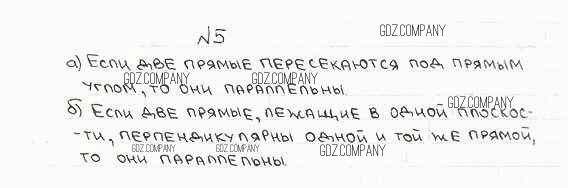 №5
GDZ.COMPANY
а) Если две прямые пересекаются под прямым
GDZ.COMPANY GDZ.COMPANY
углом, то они параллельны.
GDZ.COMPANY
б) Если две прямые, лежащие в одной плоскос-
-ти, перпендикулярны одной и той же прямой,
GDZ.COMPANY GDZ.COMPANY GDZ.COMPANY
то они параллельны.